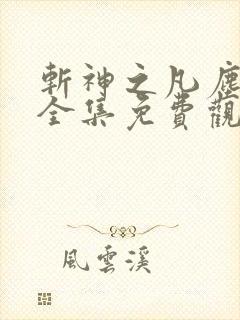 斬神之凡塵
全集免費觀
風雲溪